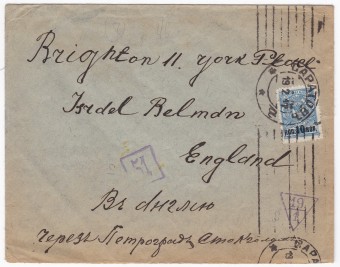 Brighton 11. York Place
Israel Belman
England
Въ Англiю
Черезъ Петроградъ Стокгольмъ
САРАТОВЪ
КОП. 10 КОП.